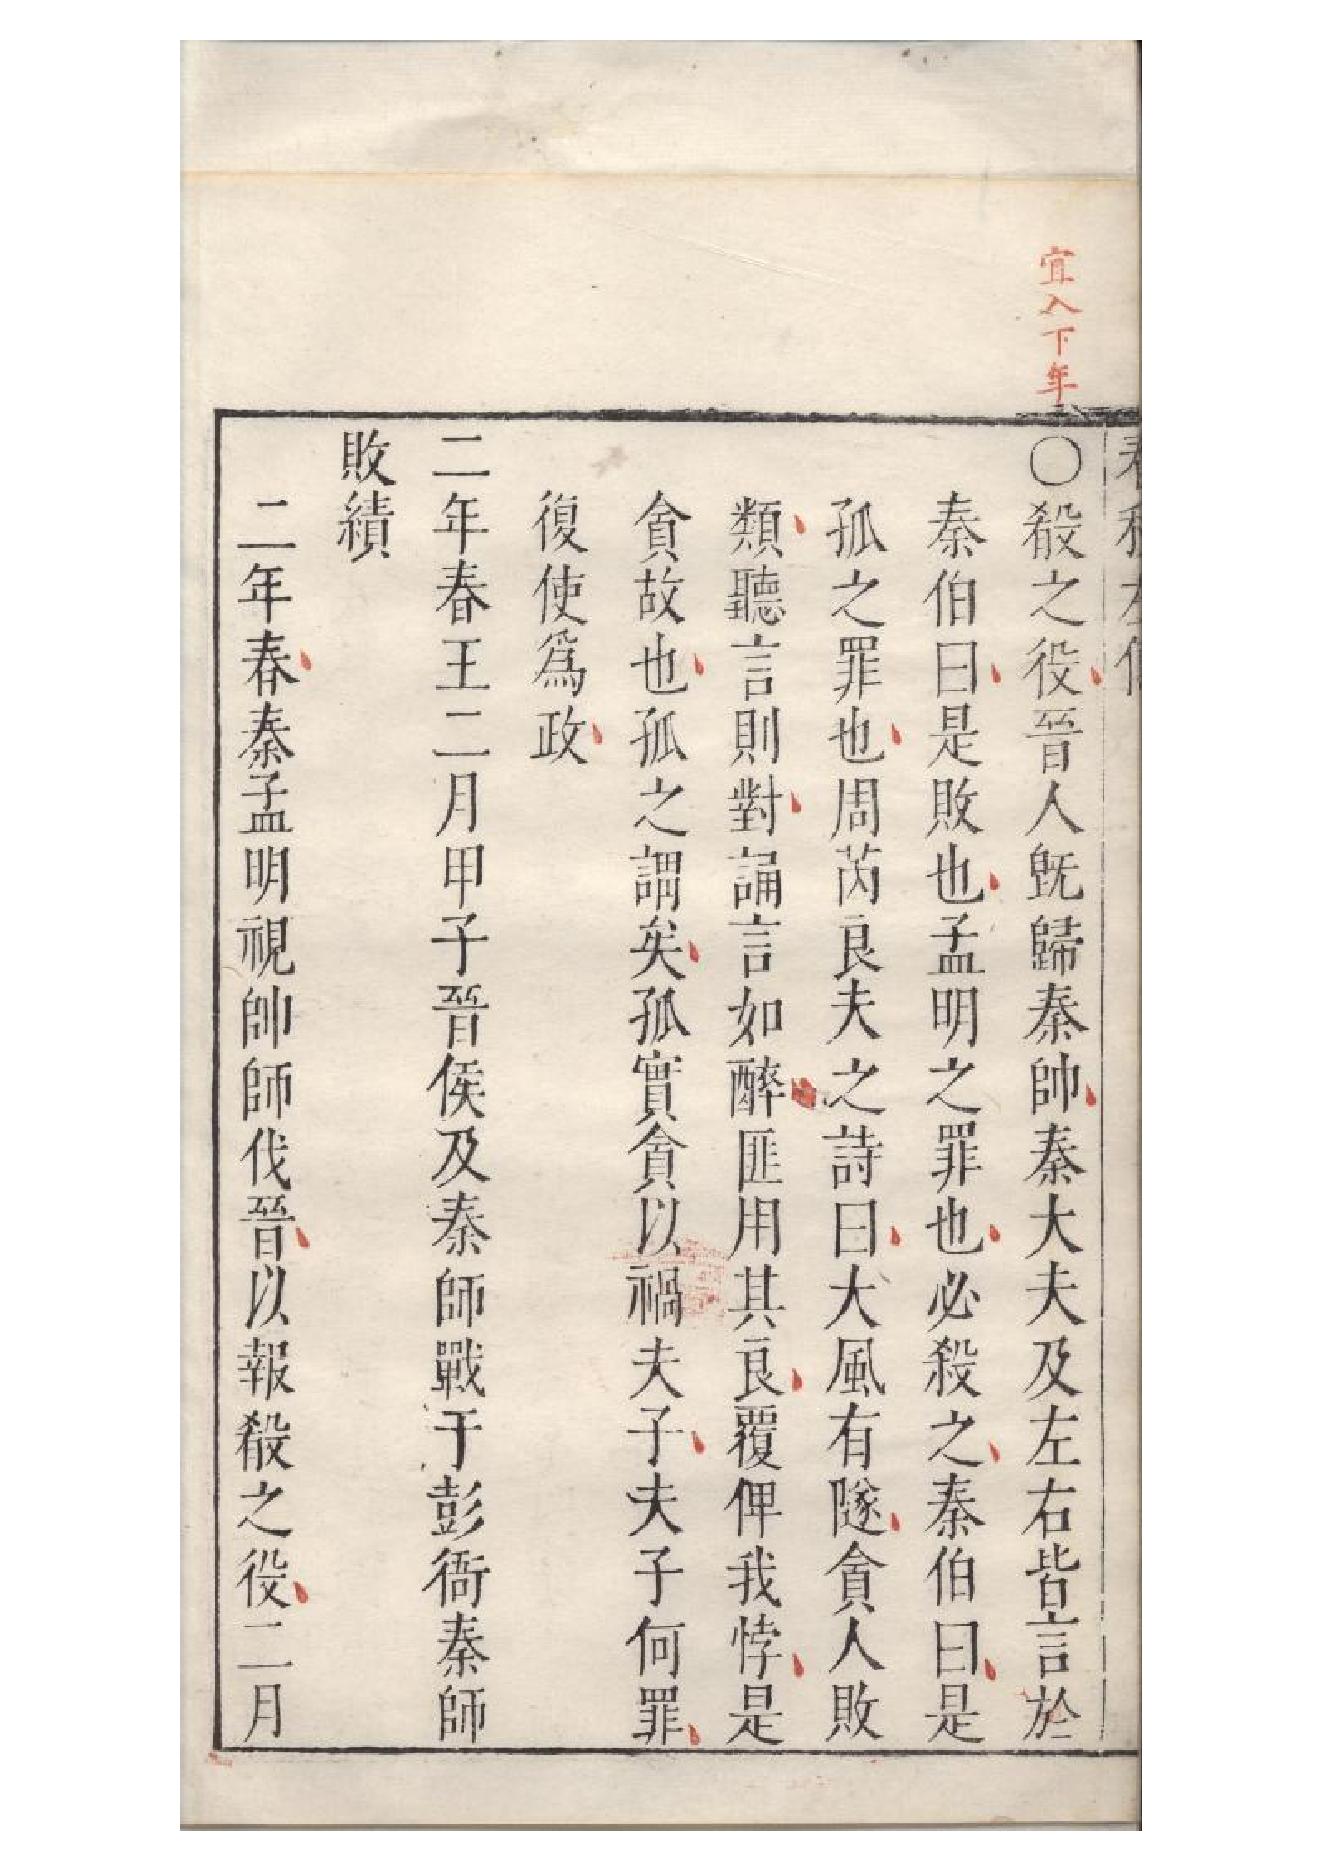 宜入下年
春秋左傳
○殽之役晉人旣歸秦帥秦大夫及左右皆言於
秦伯曰是敗也孟明之罪也必殺之秦伯曰是
孤之罪也周芮良夫之詩曰大風有隧貪人敗
類聽言則對誦言如醉匪用其良覆俾我悖是
貪故也孤之謂矣孤實貪以禍夫子夫子何罪
復使爲政
二年春王二月甲子晉侯及秦師戰于彭衙秦師
敗績
二年春秦孟明視帥師伐晉以報殽之役二月